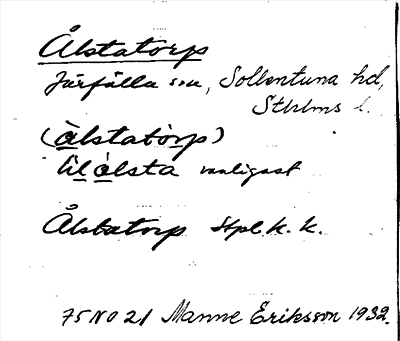 Ålstatorp
Järfälla sn, Sollentuna hd,
Sthlms l.
(Àlstatòrp)
lìlálsta vanligast
Ålstatorp Hpl. k. k.
75 NO 21 Manne Eriksson 1932.